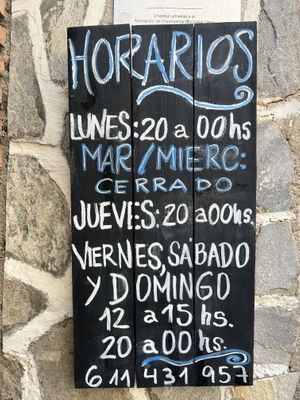 HORARIOS
LUNES: 20 a 00hs
MAR/MIERC:
CERRADO
JUEVES: 20 a 00hs.
VIERNES, SABADO
Y DOMINGO
12 a 15 hs.
20 a 00 hs.
611 431 957